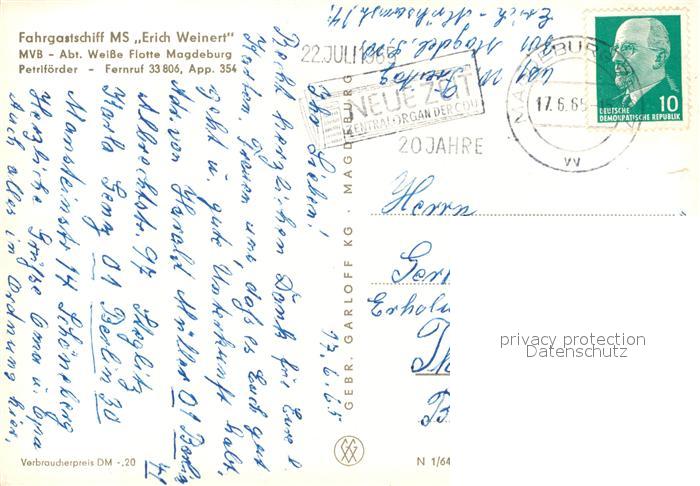 Fahrgastschiff MS „Erich Weinert"
MVB - Abt. Weiße Flotte Magdeburg
Petriförder - Fernruf 33 806, App. 354
22. JULI 1965
NEUE ZEIT
ZENTRAL-ORGAN DER CDU
20 JAHRE
MAGDEBURG
17.6.65
DEUTSCHE
DEMOKRATISCHE REPUBLIK
10
17.6.65
Ihr Lieben!
Recht herzlichen Dank für Eure l.
Karten, freuen uns, daß es Euch gut
geht u. gute Unterkunft habt,
Adr. von Harald Müller 01 Berlin 41
Albrechtstr. 97 Steglitz
Karla Lenz 01 Berlin 30
Mansteinstr. 14 Schöneberg
Herzliche Grüße Oma u. Opa
Auch alles in Ordnung hier,
Herrn
GEBR. GARLOFF KG · MAGDEBURG
Verbraucherpreis DM -,20
N 1/64
privacy protection
Datenschutz